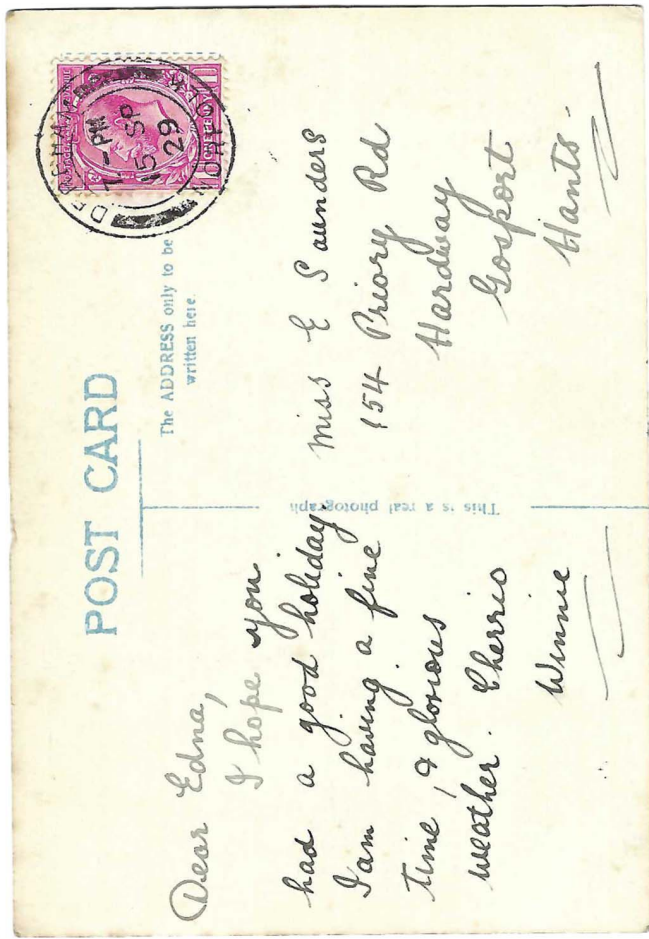 POST CARD
The ADDRESS only to be
written here.
This is a real photograph
Dear Edna,
I hope you
had a good holiday
I am having a fine
time, & glorious
weather. Cherrio
Winnie
Miss E Saunders
154 Priory Rd
Hardway
Gosport
Hants.
7-PM
15 SP
29
NORFOLK